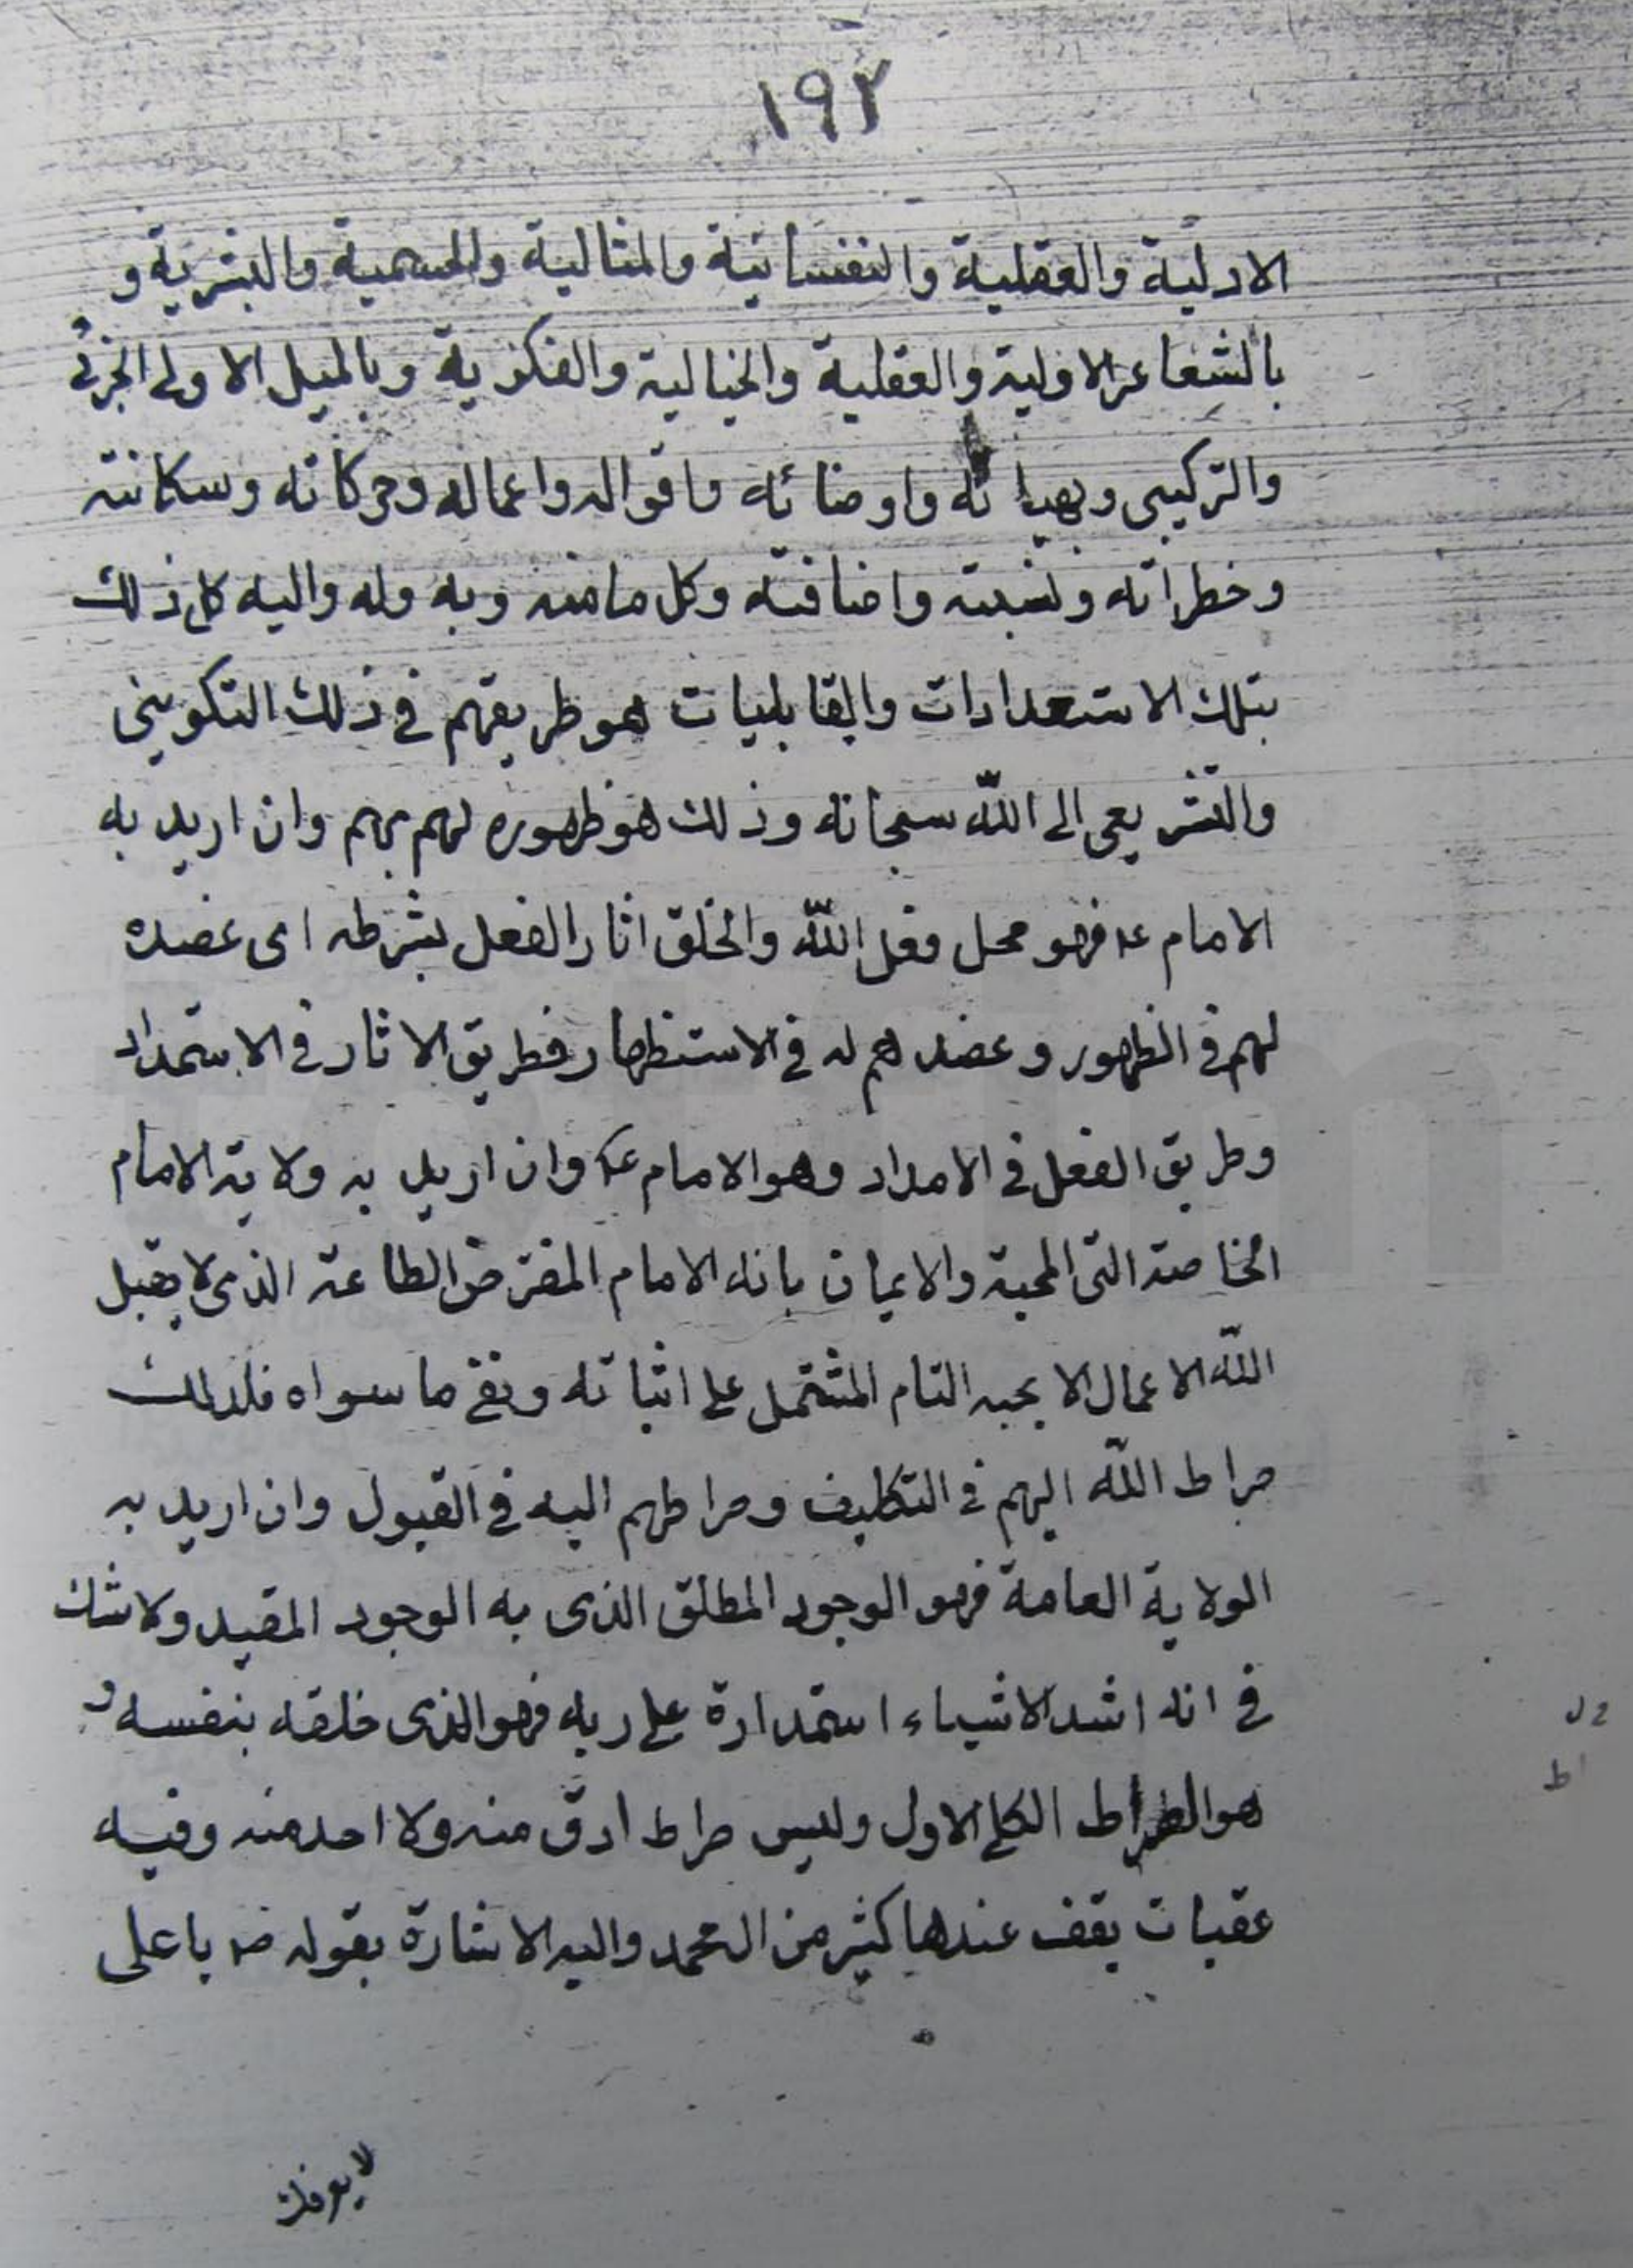 ١٩٢
الاولية والعقلية والنفسانية والمثالية والجسمية والبشرية و
بالشعاعر الاولية والعقلية والخيالية والفكرية وبالميل الاولى الجزئى
والتركيبى وبهيأته واوضائه واقواله واعماله وحركاته وسكاناته
وخطراته ونسبته واضافته وكل ما منه وبه وله واليه كل ذلك
بتلك الاستعدادات والقابليات هو طريقهم فى ذلك التكوينى
والتشريعى الى الله سبحانه وذلك هو ظهوره لهم بهم وان اريد به
الامام عم فهو محل فعل الله والخلق اثار الفعل بشرطه اى عضده
لهم فى الظهور وعضدهم له فى الاستظهار فطريق الاثار فى الاستمداد
وطريق الفعل فى الامداد وهو الامام عم وان اريد به ولاية الامام
الخاصة التى المحبة والايمان بانه الامام المفترض الطاعة الذى لا يقبل
الله الاعمال الا بحبه التام المشتمل على اثباته ونفى ما سواه فلذلك
صراط الله اليهم فى التكليف وصراطهم اليه فى القبول وان اريد به
الولاية العامة فهو الوجود المطلق الذى به الوجود المقيد ولا شك
فى انه اشد الاشياء استمدارة على ربه فهو الذى خلقه بنفسه و
هو الصراط الكلى الاول وليس صراط ادق منه ولا احد منه وفيه
عقبات يقف عندها كثير من المحمد واليه الاشارة بقوله ص يا على
لا يعرفك